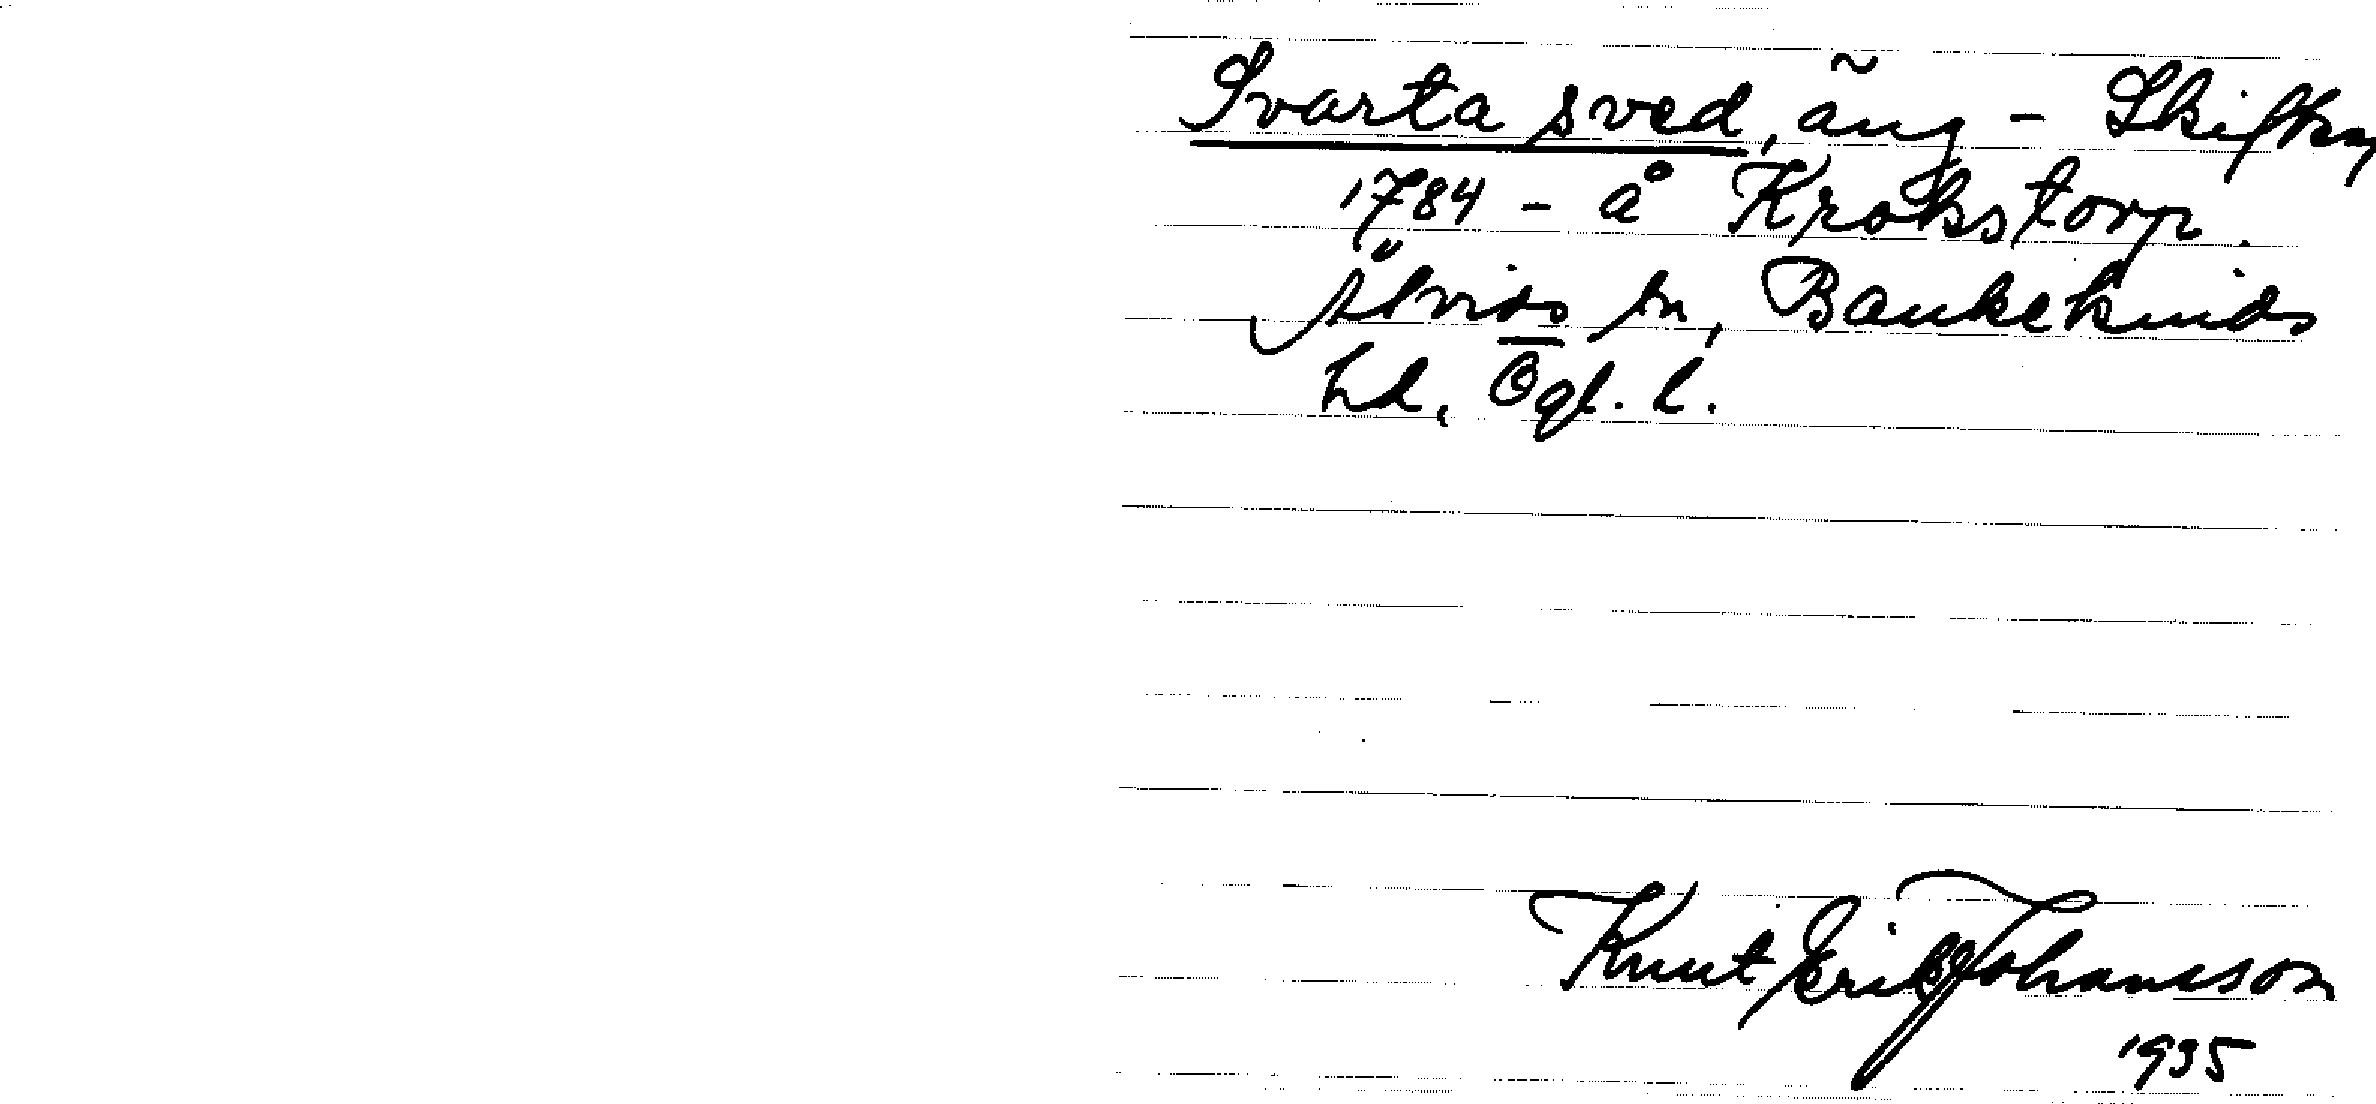 Svarta sved, äng - Skifteng
1784 - å Krokstorp.
Älvids sn, Bankekinds
hd, Ögl. l.
Knut Erik Johansson
1935